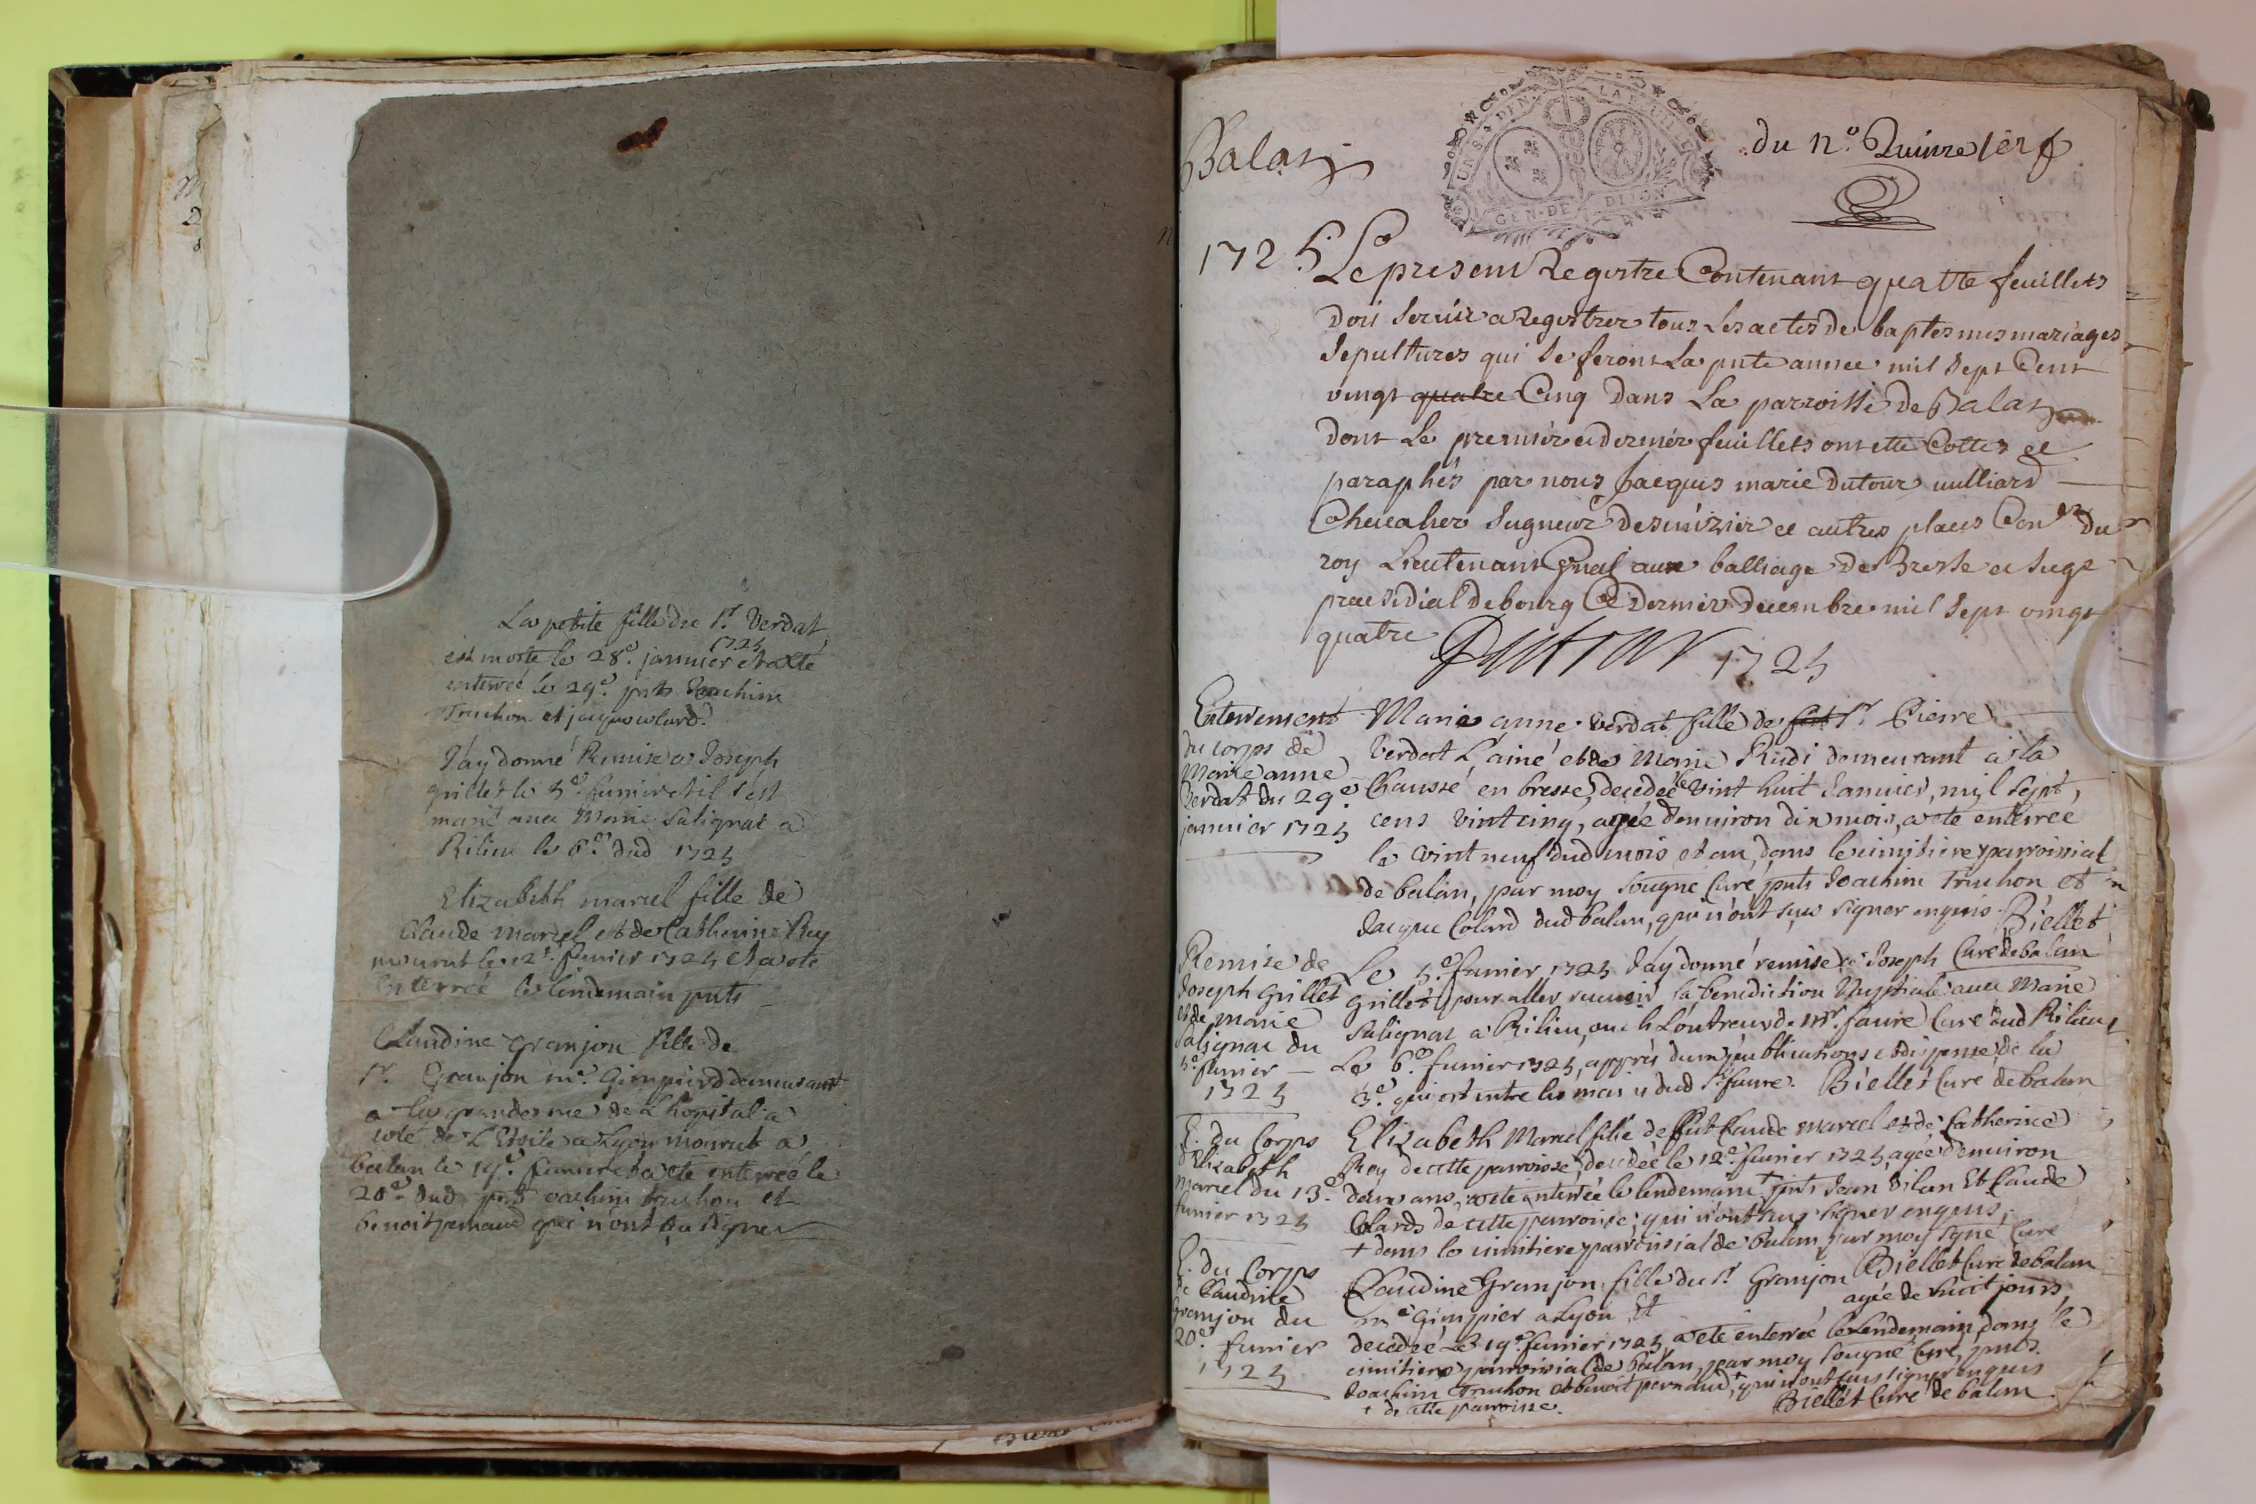 La petite fille du Sr. Verdat
est morte le 28e. janvier 1725 et a été
enterrée le 29e. pnts Joachim
Truchon et jacque colard.
J'ay donné Remise a Joseph
grillet le 5e. fevrier et il s'est
marié avec Marie Salignat a
Rilieu le 6e. dud 1725
Elizabeth marcel fille de
Claude marcel et de Catherine Rey
mourut le 12e. fevrier 1725 et a ete
Enterrée le lendemain pnts
Claudine granjon fille de
Sr. Granjon me. Gimpier demeurant
a la grande rue de L'hopital a
coté de L'Etoile a Lyon mourut a
balan le 19e. fevrier et a ete enterrée le
20e. dud pnts joachim truchon et
benoit pernaud qui n'ont su signer
Balan
UN S. 4 DEN. LA FEUILLE
GEN. DE DIJON
du no. Quinze 1er f
1725
Le present Registre Contenant quattre feuillets
doit servir a Registrer tous Les actes de baptesmes mariages
Sepultures qui se feront La pnte annee mil sept Cent
vingt quatre Cinq dans La parroisse de Balan
dont Le premier et dernier feuillets ont ette Cottez et
paraphés par nous Jacques marie Dutour vulliard
Chevalier Seigneur de St nizier et autres places Coner du
roy Lieutenant Gnal aux balliage de Bresse et siege
praesidial de bourg Ce dernier decembre mil sept vingt
quatre Dutour 1725
Enterrement
du corps de
Marie anne
Verdat du 29e.
janvier 1725
Marie anne verdat fille de feut Sr. Pierre
Verdat L'ainé et de Marie Rudi demeurant a la
Chaussé en bresse, decedée le vint huit Janvier, mil sept,
cens vint cinq, agée d'environ dix mois, a ete enterrée
le vint neuf dud mois et an, dans le cimitiere parroissial
de balan, par moy sousigné Curé, pnts Joachim Truchon et
Jacque Colard dud balan, qui n'ont sçu signer enquis. Biellet
Curé de balan
Remise de
Joseph Grillet
et de marie
Salignat du
5e. fevrier
1725
Le 5e. fevrier 1725 J'ay donné remise a Joseph
Grillet pour aller recevoir la benediction Nuptiale avec Marie
Salignat a Rilieu, de Mr. faure Curé dud Rilieu,
Le 6e. fevrier 1725, apprés deux publications et dispense de la
3e. qui est entre les mains dud Sr. faure. Biellet Curé de balan
E. du Corps
d'Elizabeth
Marcel du 13e.
fevrier 1725
Elizabeth Marcel fille de feut Claude Marcel et de Catherine
Rey de cette parroisse, decedée le 12e. fevrier 1725, agée d'environ
deux ans, a ete enterrée le lendemain + pnts Jean Vilan Et Claude
Colard de cette parroise, qui n'ont sçu signer enquis.
+ dans le cimitiere parroissial de balan par moy signé Curé
Biellet Curé de balan
E. du Corps
de Claudine
Granjon du
20e. fevrier
1725
Claudine Granjon, fille du Sr. Granjon
agée de huit jours,
me. Gimpier a Lyon, Et
decedée Le 19e. fevrier 1725, a ete enterrée le Lendemain dans le
cimitiere parroissial de balan, par moy sousigné Curé, pnts.
Joachim Truchon et benoit pernaud, + qui n'ont sçus signer enquis
+ de cette parroisse.
Biellet Curé de balan